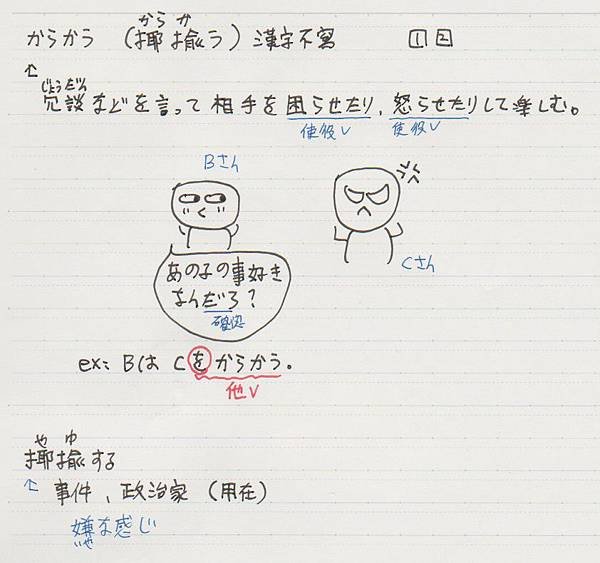 からか
からかう （揶揄う）漢字不寫 1 2
↑
じょうだん
冗談などを言って相手を困らせたり，怒らせたりして楽しむ。
使役V 使役V
Bさん
Cさん
あの子の事好き
なんだろ？
確認
ex: BはCをからかう。
他V
やゆ
揶揄する
↑ 事件、政治家（用在）
嫌な感じ
いや